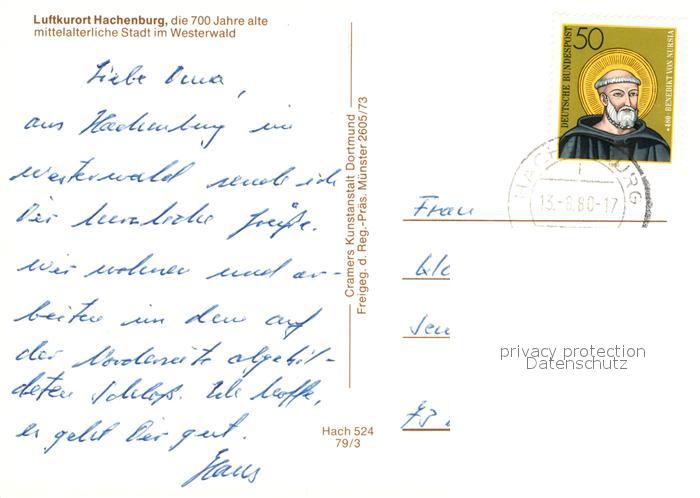 Luftkurort Hachenburg, die 700 Jahre alte
mittelalterliche Stadt im Westerwald
Liebe Oma,
aus Hachenburg im
Westerwald sende ich
Dir herzliche Grüße.
Wir wohnen und ar-
beiten in dem auf
der Vorderseite abgebil-
deten Schloß. Ich hoffe,
es geht Dir gut.
Hans
Cramers Kunstanstalt Dortmund
Freigeg. d. Reg.-Präs. Münster 2605/73
Hach 524
79/3
DEUTSCHE BUNDESPOST
50
*480 · BENEDIKT VON NURSIA
HACHENBURG
13.-8.80-17
Frau
privacy protection
Datenschutz